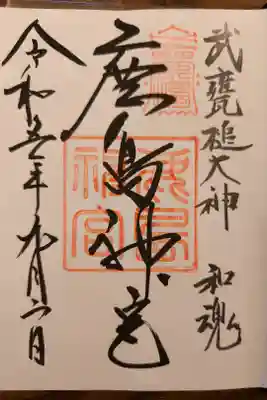 武甕槌大神 和魂
鹿島神宮
鹿島
神宮
令和五年九月六日